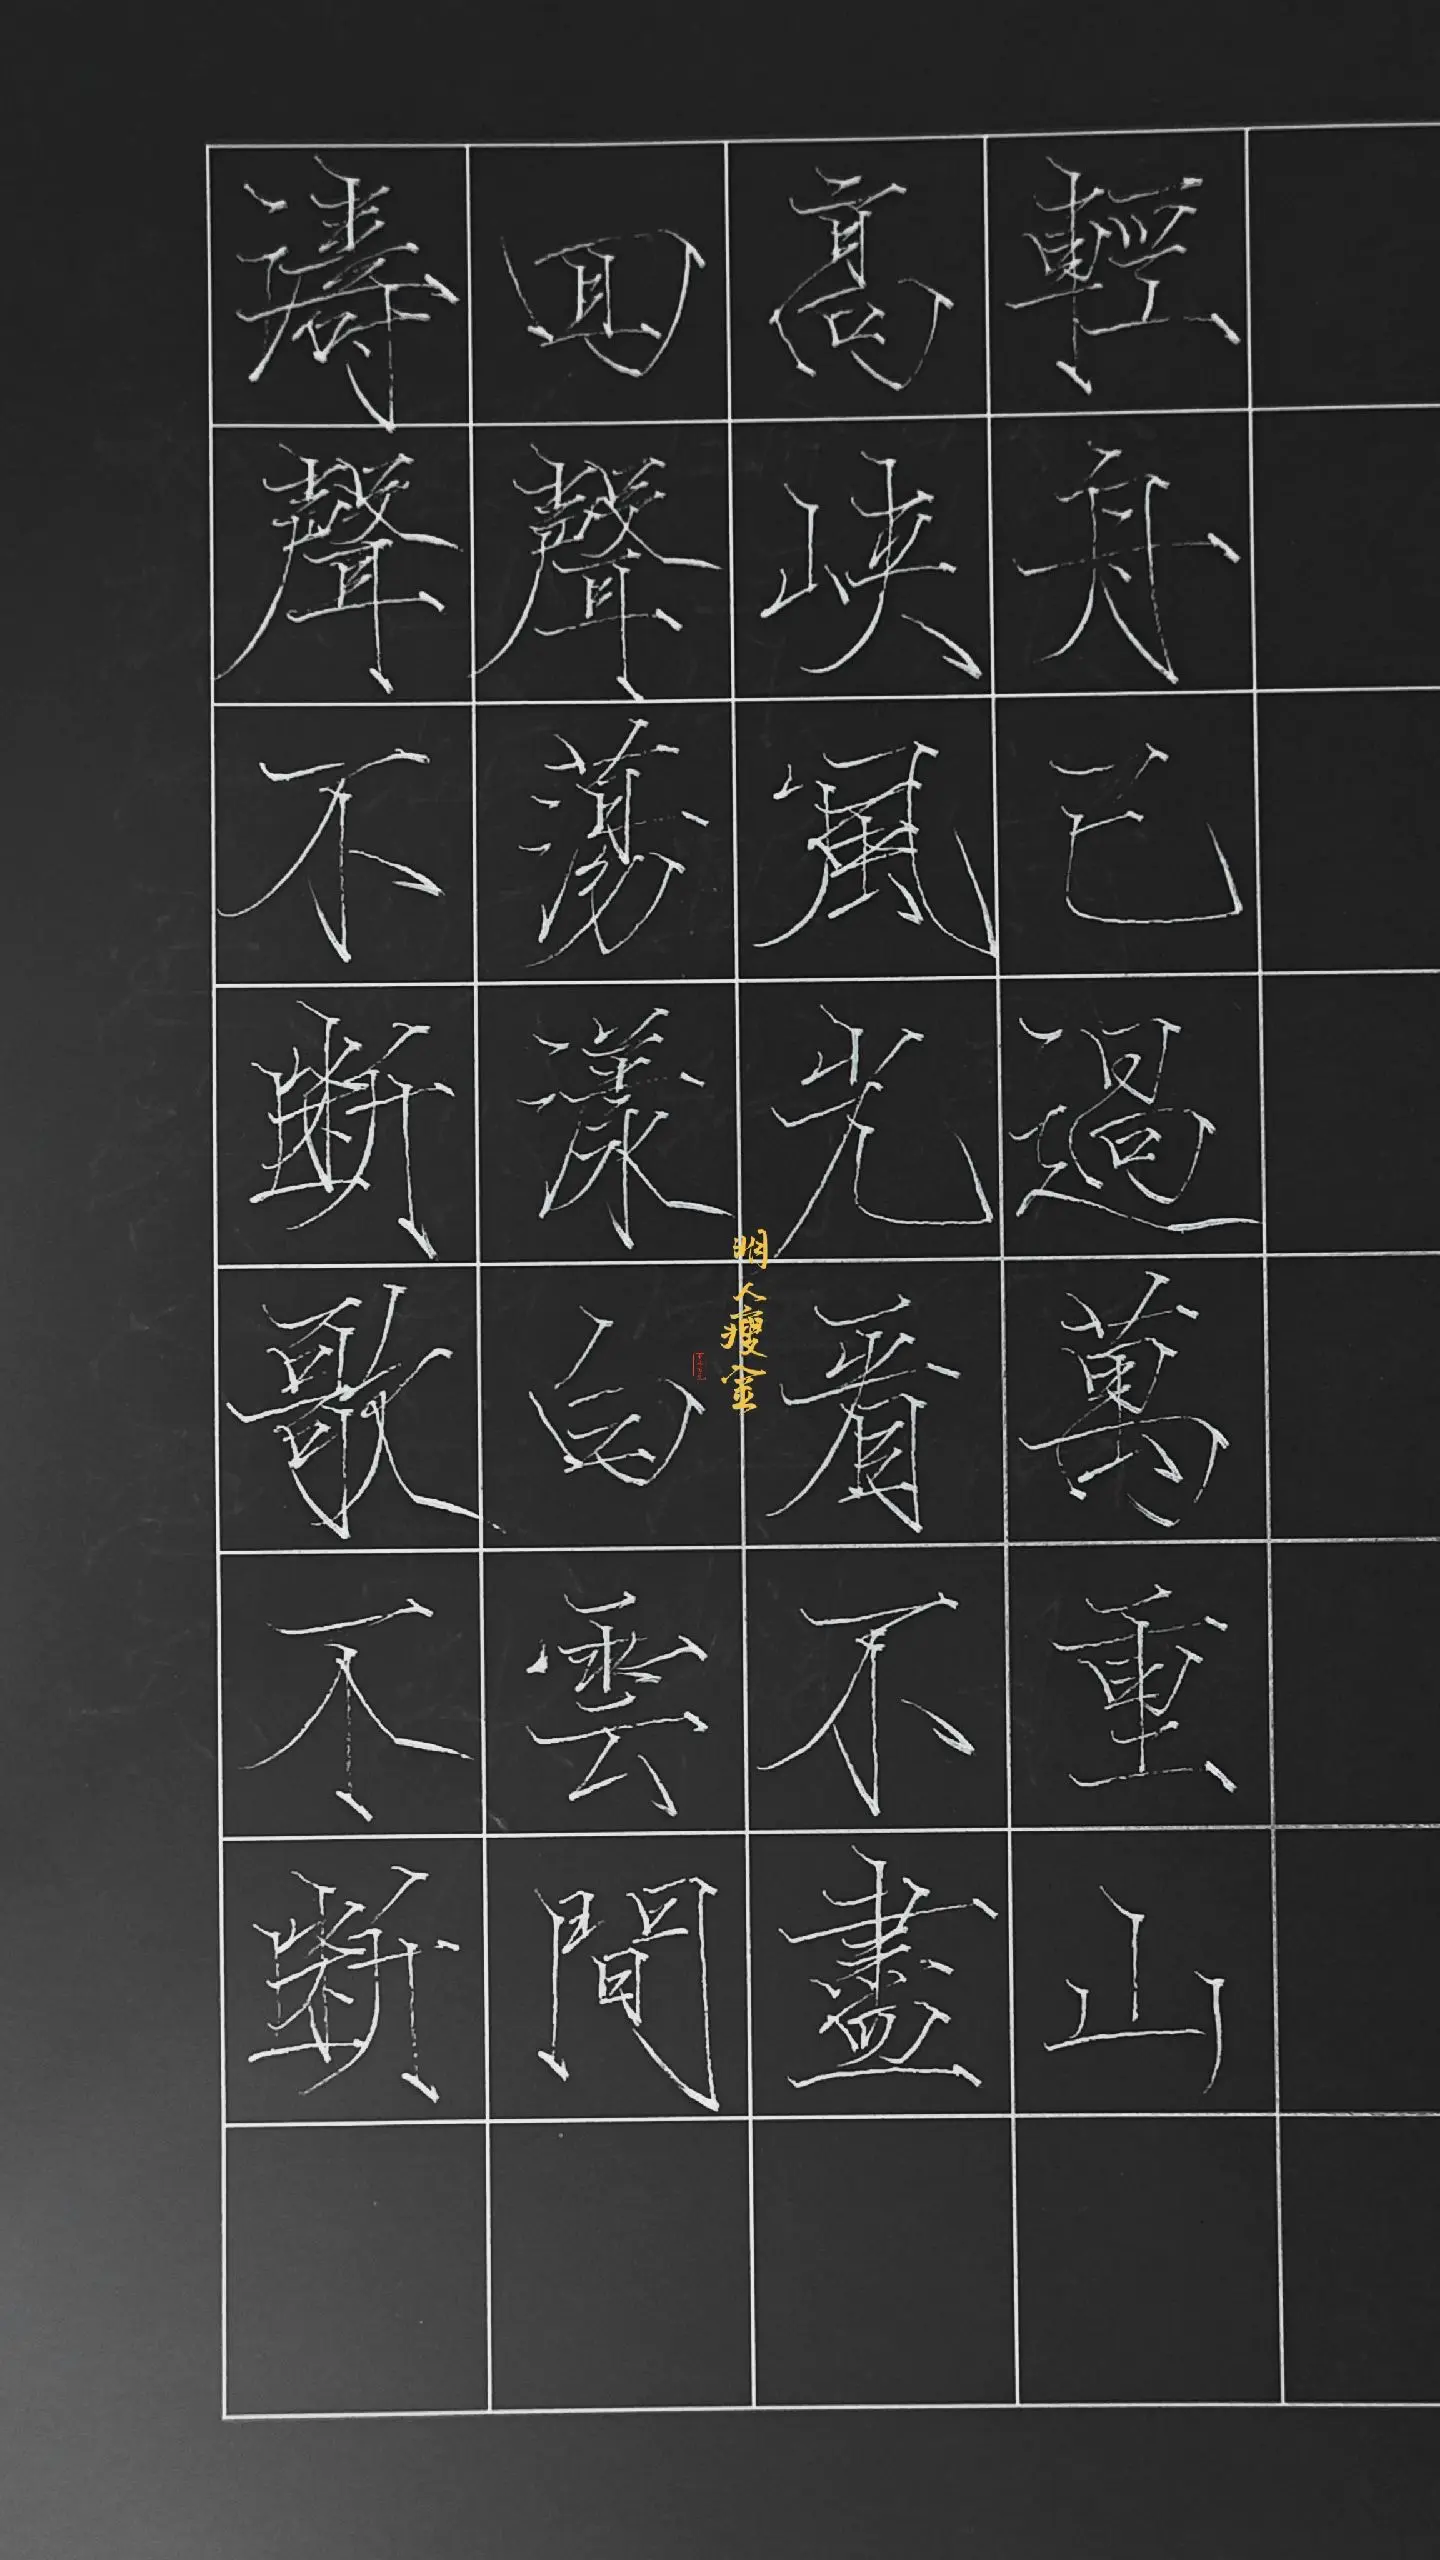 輕舟已過萬重山
高峽風光看不盡
回聲蕩漾白雲間
濤聲不斷歌不斷
明人瘦金